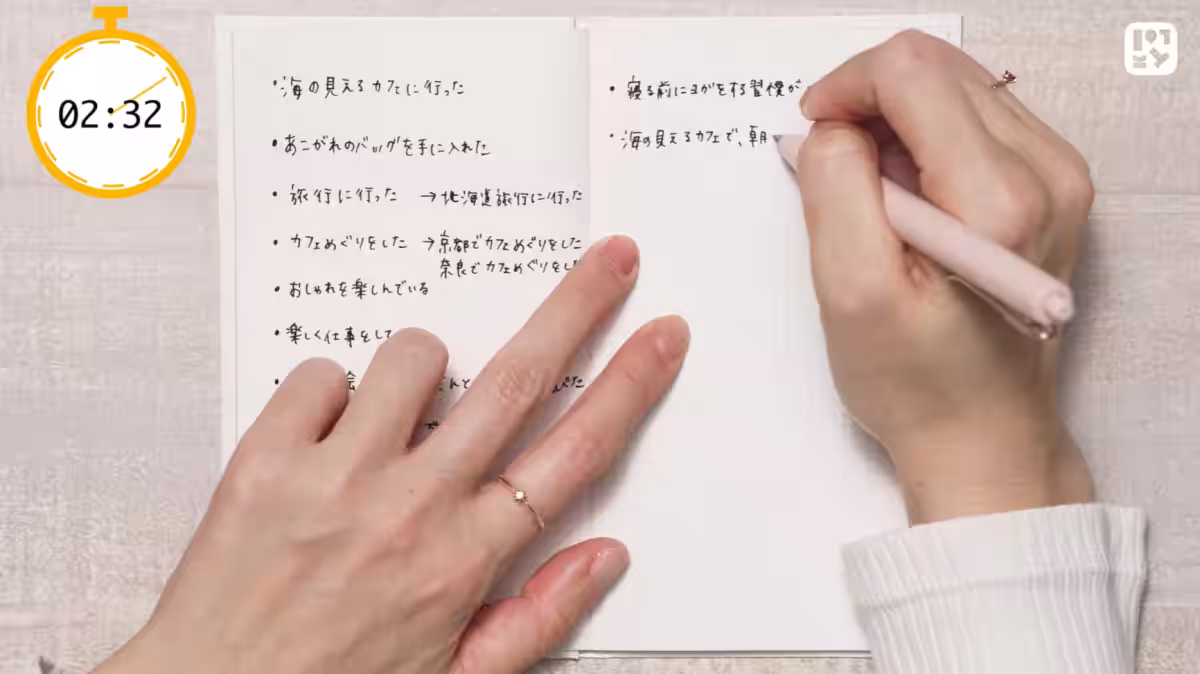 02:32
・海の見えるカフェに行った
・あこがれのバッグを手に入れた
・旅行に行った →北海道旅行に行った
・カフェめぐりをした →京都でカフェめぐりをした
奈良でカフェめぐりをした
・おしゃれを楽しんでいる
・楽しく仕事をして
・寝る前にヨガをする習慣が
・海の見えるカフェで、朝